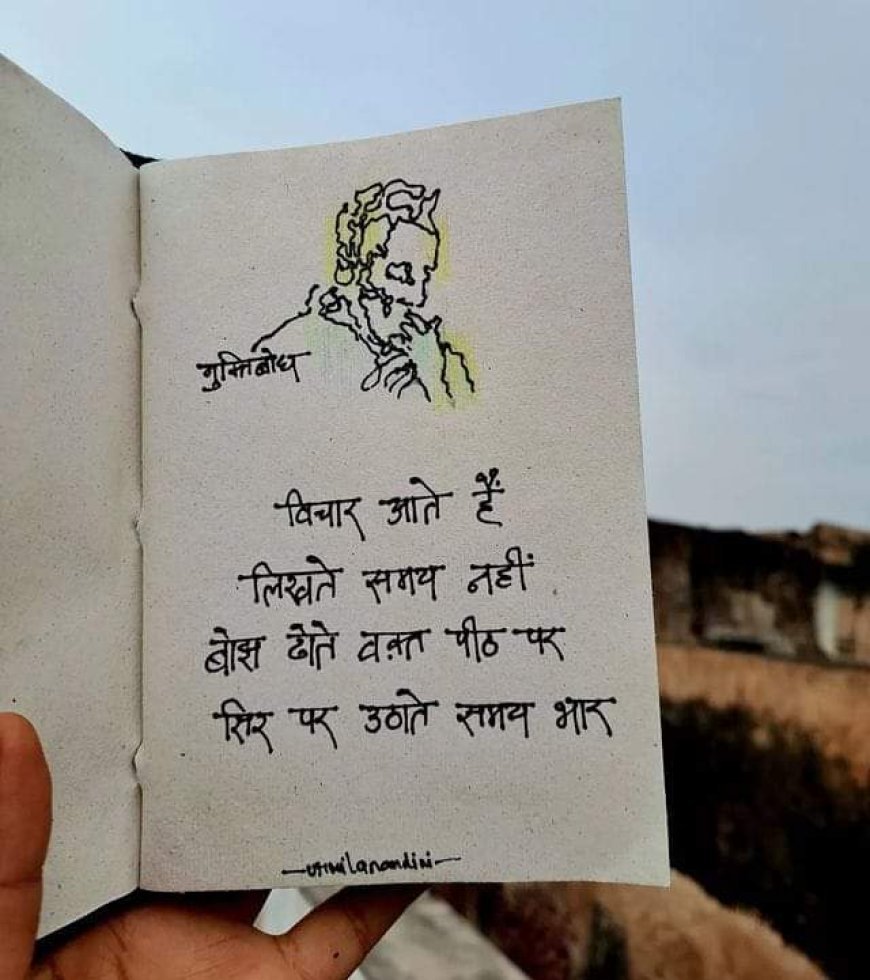 मुक्तिबोध
विचार आते हैं
लिखते समय नहीं
बोझ ढोते वक़्त पीठ पर
सिर पर उठाते समय भार